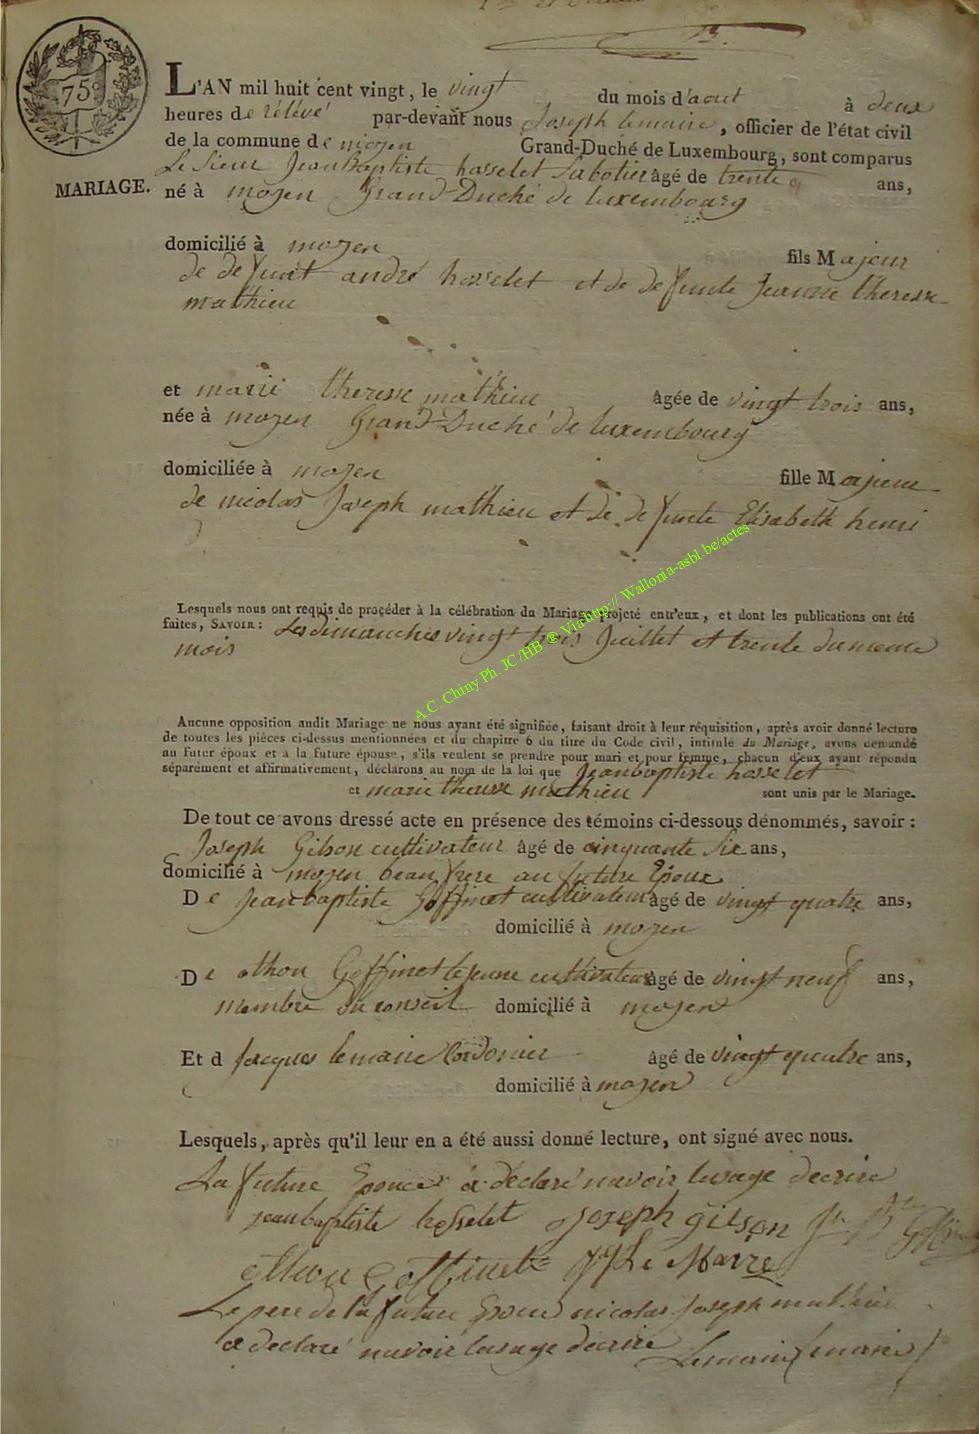 75c
L'AN mil huit cent vingt, le vingt du mois d'aout à deux
heures de rélévé par-devant nous Joseph lemaire, officier de l'état civil
de la commune de moyen Grand-Duché de Luxembourg, sont comparus
Le Sieur Jean Baptiste hosselet Sabotier âgé de trente ans,
MARIAGE.
né à moyen Grand-Duché de luxembourg
domicilié à moyen fils Majeur
de defunt andré hosselet et de defunte Jeanne therese
mathieu
et marie therese mathieu âgée de vingt trois ans,
née à moyen Grand-Duché de luxembourg
domiciliée à moyen fille Majeure
de nicolas Joseph mathieu et de defunte Elisabeth henri
Lesquels nous ont requis de procéder à la célébration du Mariage projeté entr'eux, et dont les publications ont été
faites, SAVOIR: Les dimanches vingt trois Juillet et trente du meme
mois
A.C. Chiny Ph. JC/HB ® Via http://Wallonia-asbl.be/actes
Aucune opposition audit Mariage ne nous ayant été signifiée, faisant droit à leur réquisition, après avoir donné lecture
de toutes les pièces ci-dessus mentionnées et du chapitre 6 du titre du Code civil, intitulé du Mariage, avons demandé
au futur époux et a la future épouse, s'ils veulent se prendre pour mari et pour femme, chacun d'eux ayant répondu
séparément et affirmativement, déclarons au nom de la loi que Jean baptiste hosselet
et marie therese mathieu sont unis par le Mariage.
De tout ce avons dressé acte en présence des témoins ci-dessous dénommés, savoir:
Joseph Gilson cultivateur âgé de cinquante Six ans,
domicilié à moyen beau frere au futur Epoux
De Jean baptiste Goffinet cultivateur âgé de vingt quatre ans,
domicilié à moyen
De othon Goffinet le jeune cultivateur âgé de vingt neuf ans,
membre du conseil domicilié à moyen
Et d Jacques lemaire Cordonier âgé de vingt quatre ans,
domicilié à moyen
Lesquels, après qu'il leur en a été aussi donné lecture, ont signé avec nous.
La future Epouse à déclaré navoir lusage decrire
jean baptiste hosselet Joseph gilson Jn Bte Goffinet
othon Goffinet Le Marre
Le pere de la future Epouse nicolas Joseph mathieu
a declaré navoir lusage decrire Lemaire